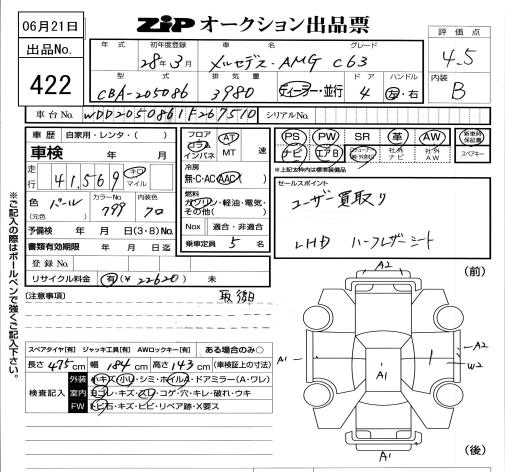 06月21日
ZiP オークション出品票
評価点
4.5
出品No.
422
年式
初年度登録
車名
グレード
28年3月
メルセデス・AMG C63
型式
排気量
ドア
ハンドル
CBA-205086
3980
ディーラー・並行
4
左・右
内装
B
車台No.
WDD2050861F267510
シリアルNo.
車歴
自家用・レンタ・( )
車検 年 月
走行
41,569
キロ
マイル
色
(元色)
パール
カラーNo.
799
内装色
クロ
予備検 年 月 日(3・8)Mo
書類有効期限 年 月 日迄
登録No.
リサイクル料金
有(¥22620) 未
フロア
コラム
インパネ
AT
MT
速
冷房
無・C・AC・AAC
燃料
ガソリン・軽油・電気・その他( )
Nox
適合・非適合
乗車定員 5 名
PS
PW
SR
革
AW
新車時保証書
ナビ
エアB
社外ナビ
社外AW
スペアキー
※上記太枠内は標準装備品
セールスポイント
ユーザー買取り
LHD ハーフレザーシート
※ご記入の際はボールペンで強くご記入下さい。
[注意事項]
スペアタイヤ[有] ジャッキ工具[有] AWロックキー[有]
ある場合のみ○
長さ 475cm 幅 184cm 高さ 143cm (車検証上の寸法)
検査記入
外装
小キズ・小凹・シミ・ホイルA・ドアミラー(A・ワレ)
室内
ヨゴレ・キズ・スレ・コゲ・穴・キレ・破れ・ウキ
FW
トビ石・キズ・ヒビ・リペア跡・X要ス
(前)
A2
A1
A1
A2
W2
A1
(後)